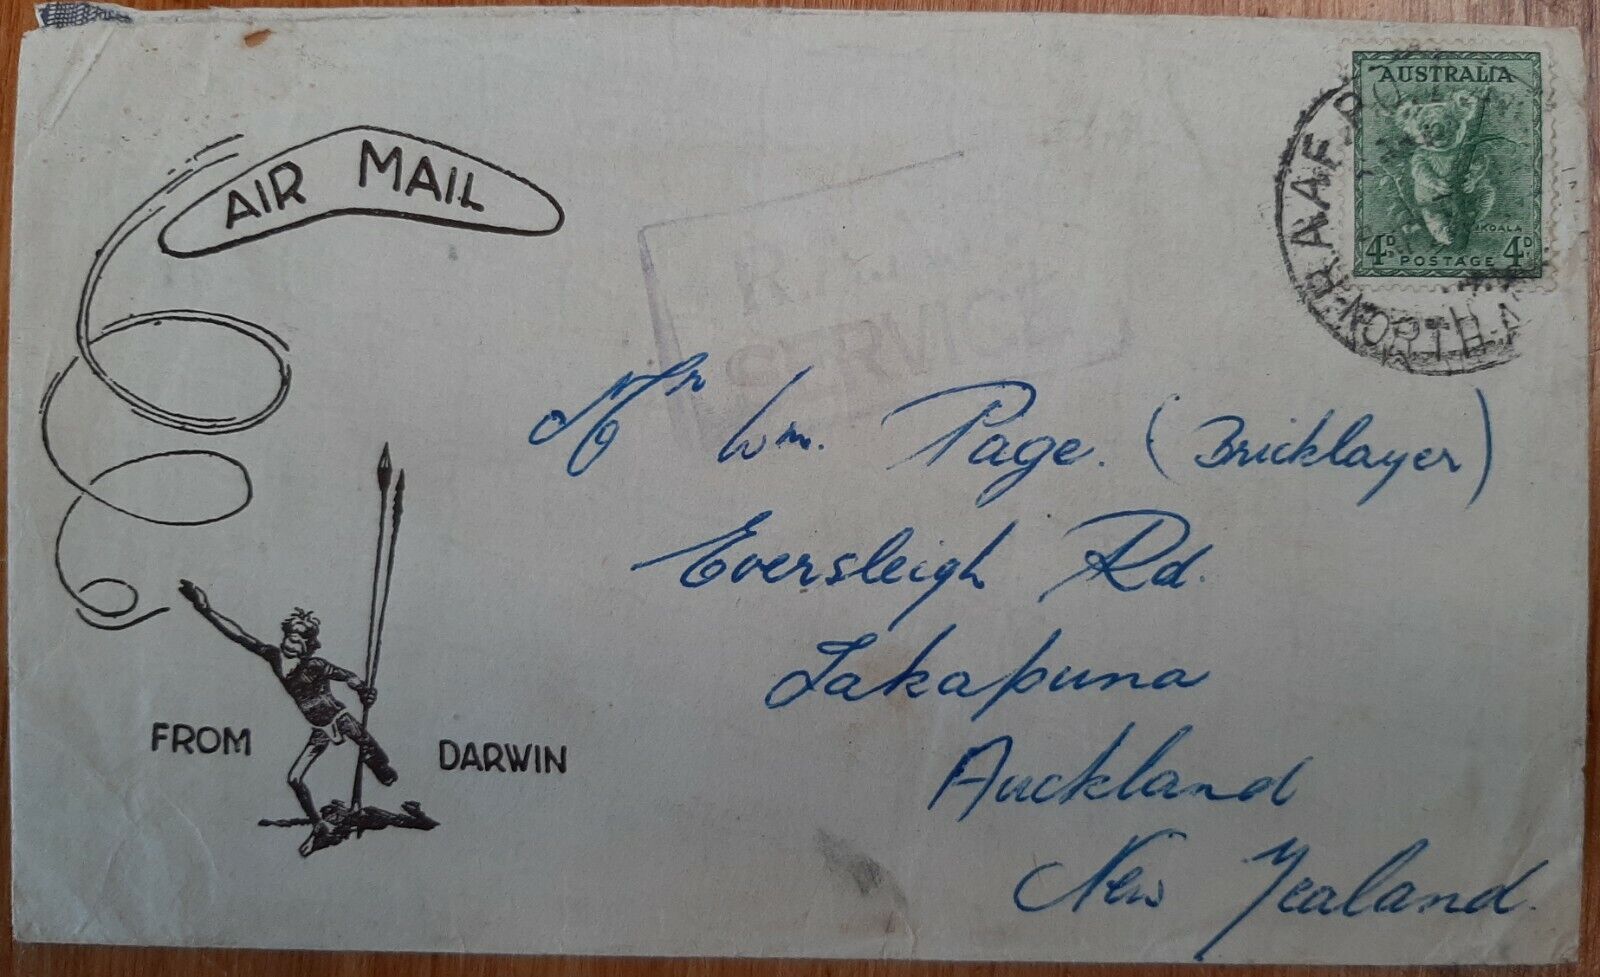 AIR MAIL
FROM DARWIN
SERVICE
AUSTRALIA
KOALA
4D POSTAGE 4D
RAAF P.O.
NORTH
Mr Wm. Page. (Bricklayer)
Eversleigh Rd.
Takapuna
Auckland
New Zealand.